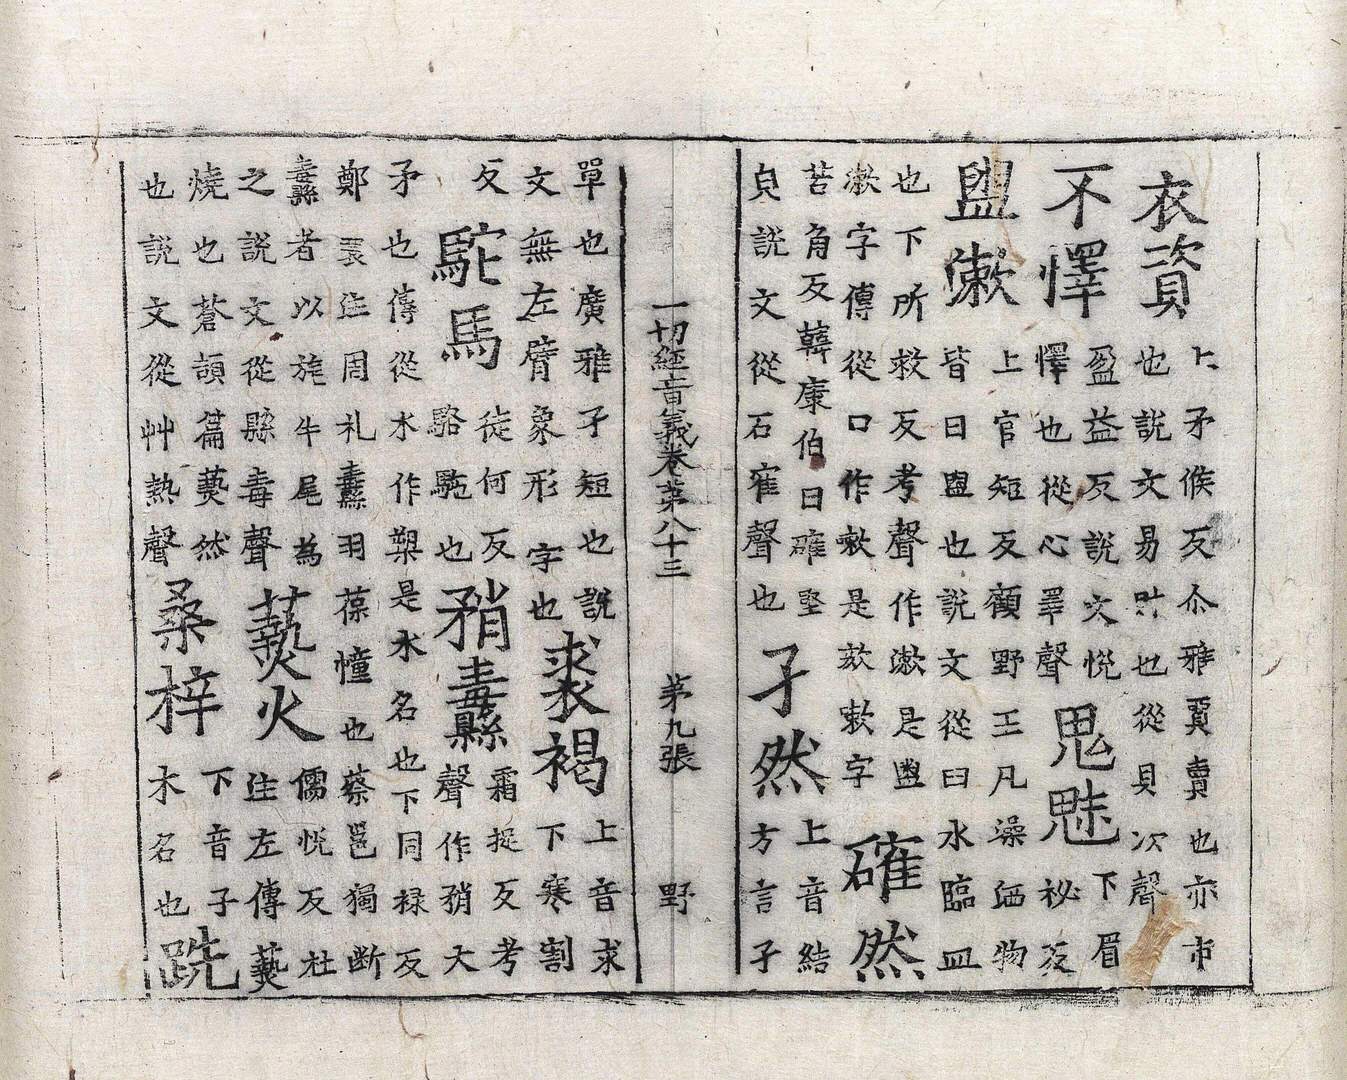 衣資
上矛侯反尒雅貿賣也亦市
也說文易財也從貝次聲
不懌
盈益反說文悅
懌也從心睪聲
鬼魅
下眉
祕反
盥漱
上官短反顧野王凡澡洒物
皆曰盥也說文從臼水臨皿
也下所救反考聲作漱是盥
漱字傳從口作嗽是欬嗽字
確然
苦角反韓康伯曰確堅
皃說文從石隺聲也
孑然
上音結
方言孑
一切經音義卷第八十三 第九張 野
單也廣雅孑短也說
文無左臂象形字也
裘褐
上音求
下寒割
反
駝馬
徒何反
駱駞也
矟纛
霜捉反考
聲作矟大
矛也傳從木作槊是水名也下同祿反
鄭衆注周礼纛羽葆幢也蔡邕獨斷
纛者以旄牛尾為
之說文從縣毒聲
爇火
儒悅反杜
注左傳爇
燒也蒼頡篇爇然
也說文從艸熱聲
桑梓
下音子
木名也
跣